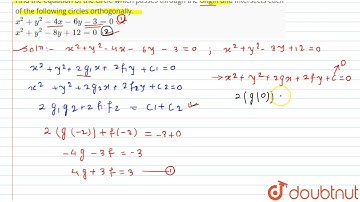 Find the equation of the circle which passes through the origin and intersects each
of the following circles orthogonally.
x² + y² − 4x − 6y − 3 = 0 ①
x² + y² − 8y + 12 = 0 ②
Soln:- x²+y²-4x-6y-3=0 ; x²+y²-8y+12=0
x²+y²+2g₁x+2f₁y+c₁=0
→x²+y²+2gx+2fy+c=0
0
x²+y²+2g₂x+2f₂y+c₂=0
2(g(0))
2g₁g₂+2f₁f₂ = c₁+c₂
2(g(-2)+f(-3)) = -3+0
-4g-3f=-3
4g+3f=3 —①
doubtnut